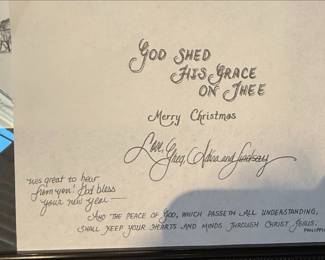 God Shed
His Grace
On Thee
Merry Christmas
Love, Greg, and Lindsay
was great to hear
from you! God bless
your new year —
And the peace of God, which passeth all understanding,
shall keep your hearts and minds through Christ Jesus.